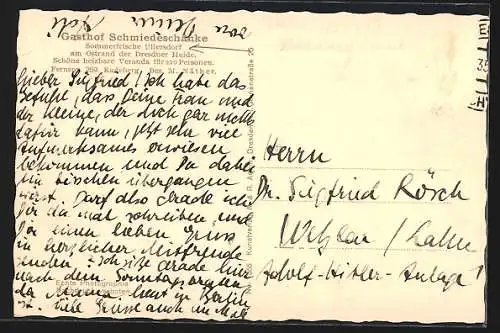 Gasthof Schmiedeschänke
Sommerfrische Ullersdorf
am Ostrand der Dresdner Heide.
Schöne heizbare Veranda für 150 Personen.
Fernspr. 260 Radeberg. Bes. M. Näther.
Lieber Sigfried! Ich habe das
Gefühl, dass Deine Frau und
der Kleine, der doch gar nicht
dafür kann, jetzt sehr viel
Aufmerksames erwiesen
bekommen und Du dabei
ein bischen übergangen
wirst. Darf also grade ich
Dir da mal schreiben, und
Dir einen lieben Gruss
in herzlicher Mitfreude
senden. Ich sitze grade hier
nach dem
da Mama heut in Berlin
ist. Viele Grüsse auch an
Echte Photographie
Herrn
Dr. Sigfried Rösch
Wetzlar / Lahn
Adolf-Hitler-Anlage 1